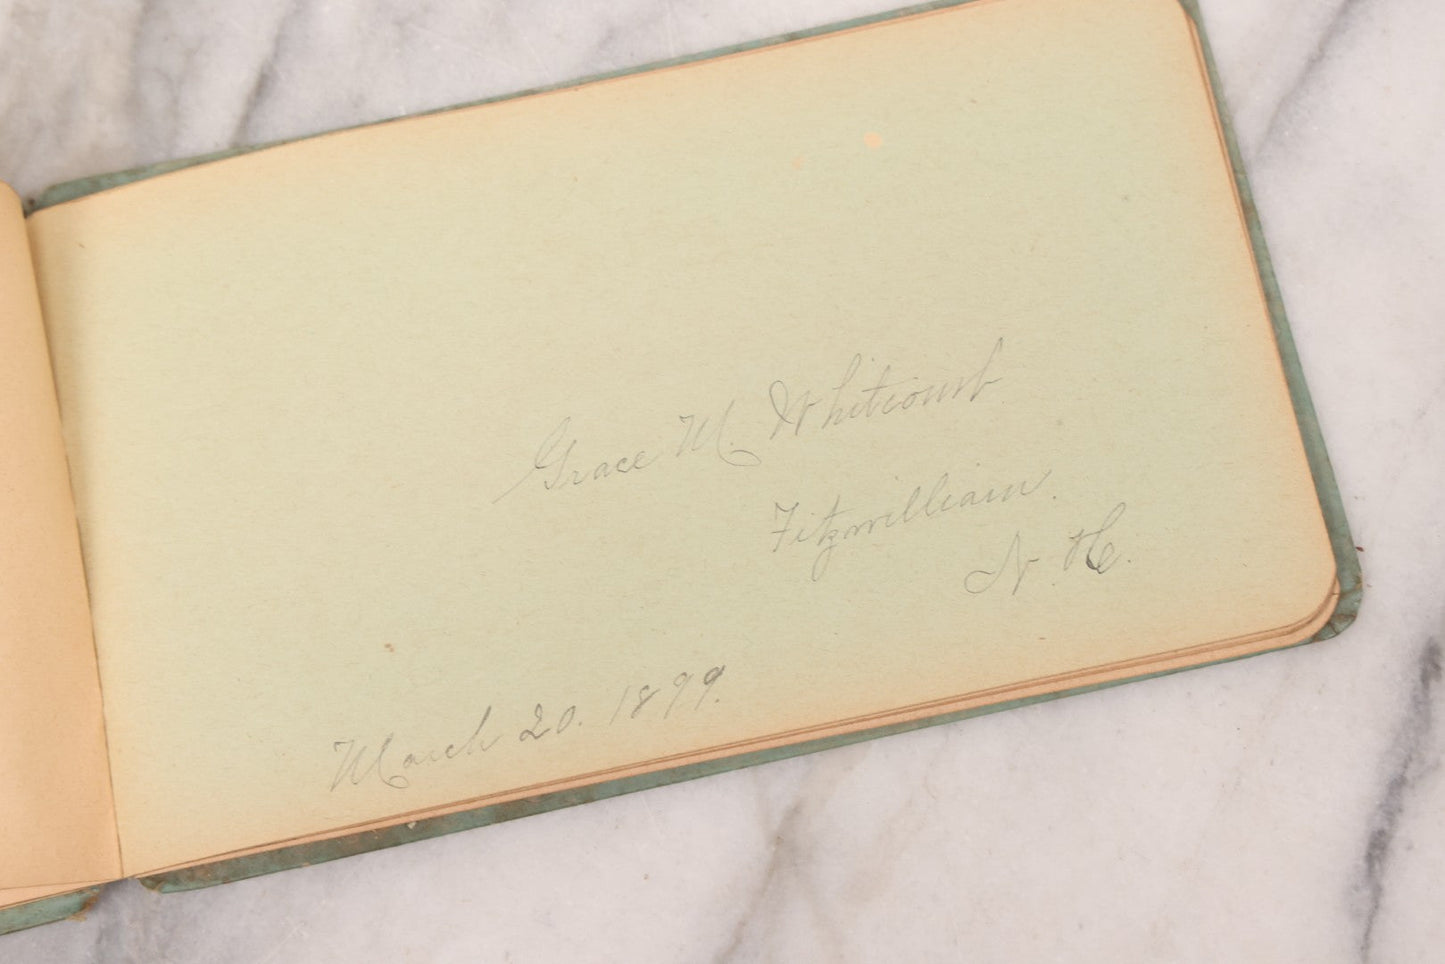 Grace M. Whitcomb
Fitzwilliam.
N. H.
March 20. 1899.